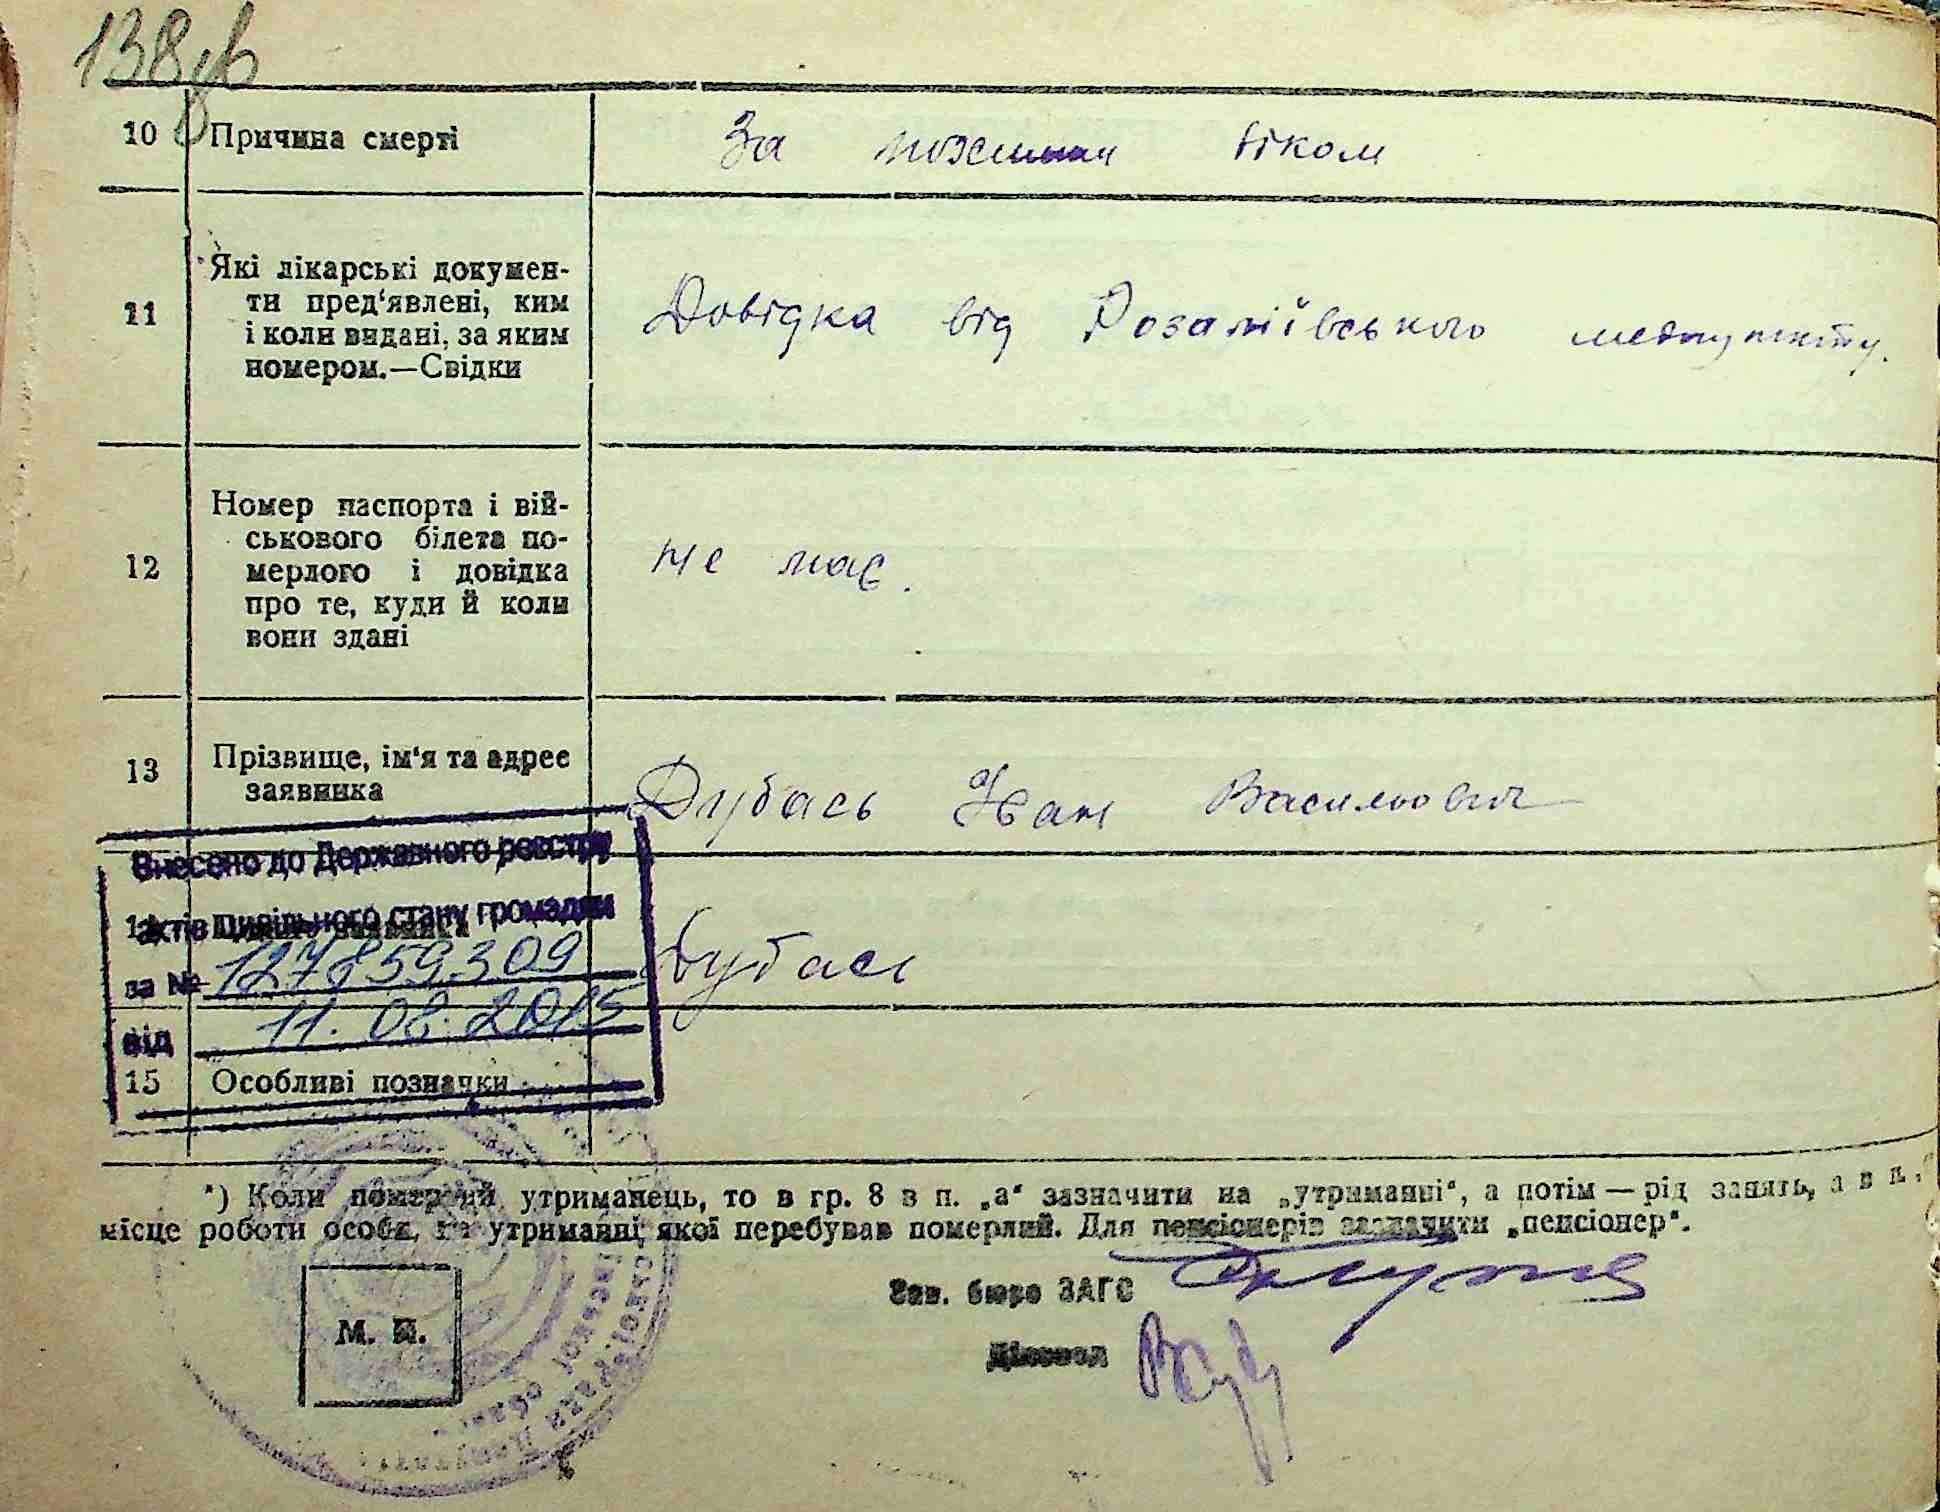 138зв
10 Причина смерті За похилим віком
11 Які лікарські докумен-
ти пред‘явлені, ким
і коли видані, за яким
номером.—Свідки
Довідка від Розаліївського медпункту.
12 Номер паспорта і вій-
ськового білета по-
мерлого і довідка
про те, куди й коли
вони здані
не має.
13 Прізвище, ім‘я та адрес
заявника
Дубась Іван Васильович
Внесено до Державного реєстру
актів цивільного стану громадян
за № 127859309
від 11.08.2015
14
Дубась
15 Особливі позначки
*) Коли померлий утриманець, то в гр. 8 в п. „а“ зазначити на „утриманні“, а потім — рід занять, а в п.
місце роботи особи, на утриманні якої перебував померлий. Для пенсіонерів зазначити „пенсіонер“.
Зав. бюро ЗАГС
Діловод
М. П.